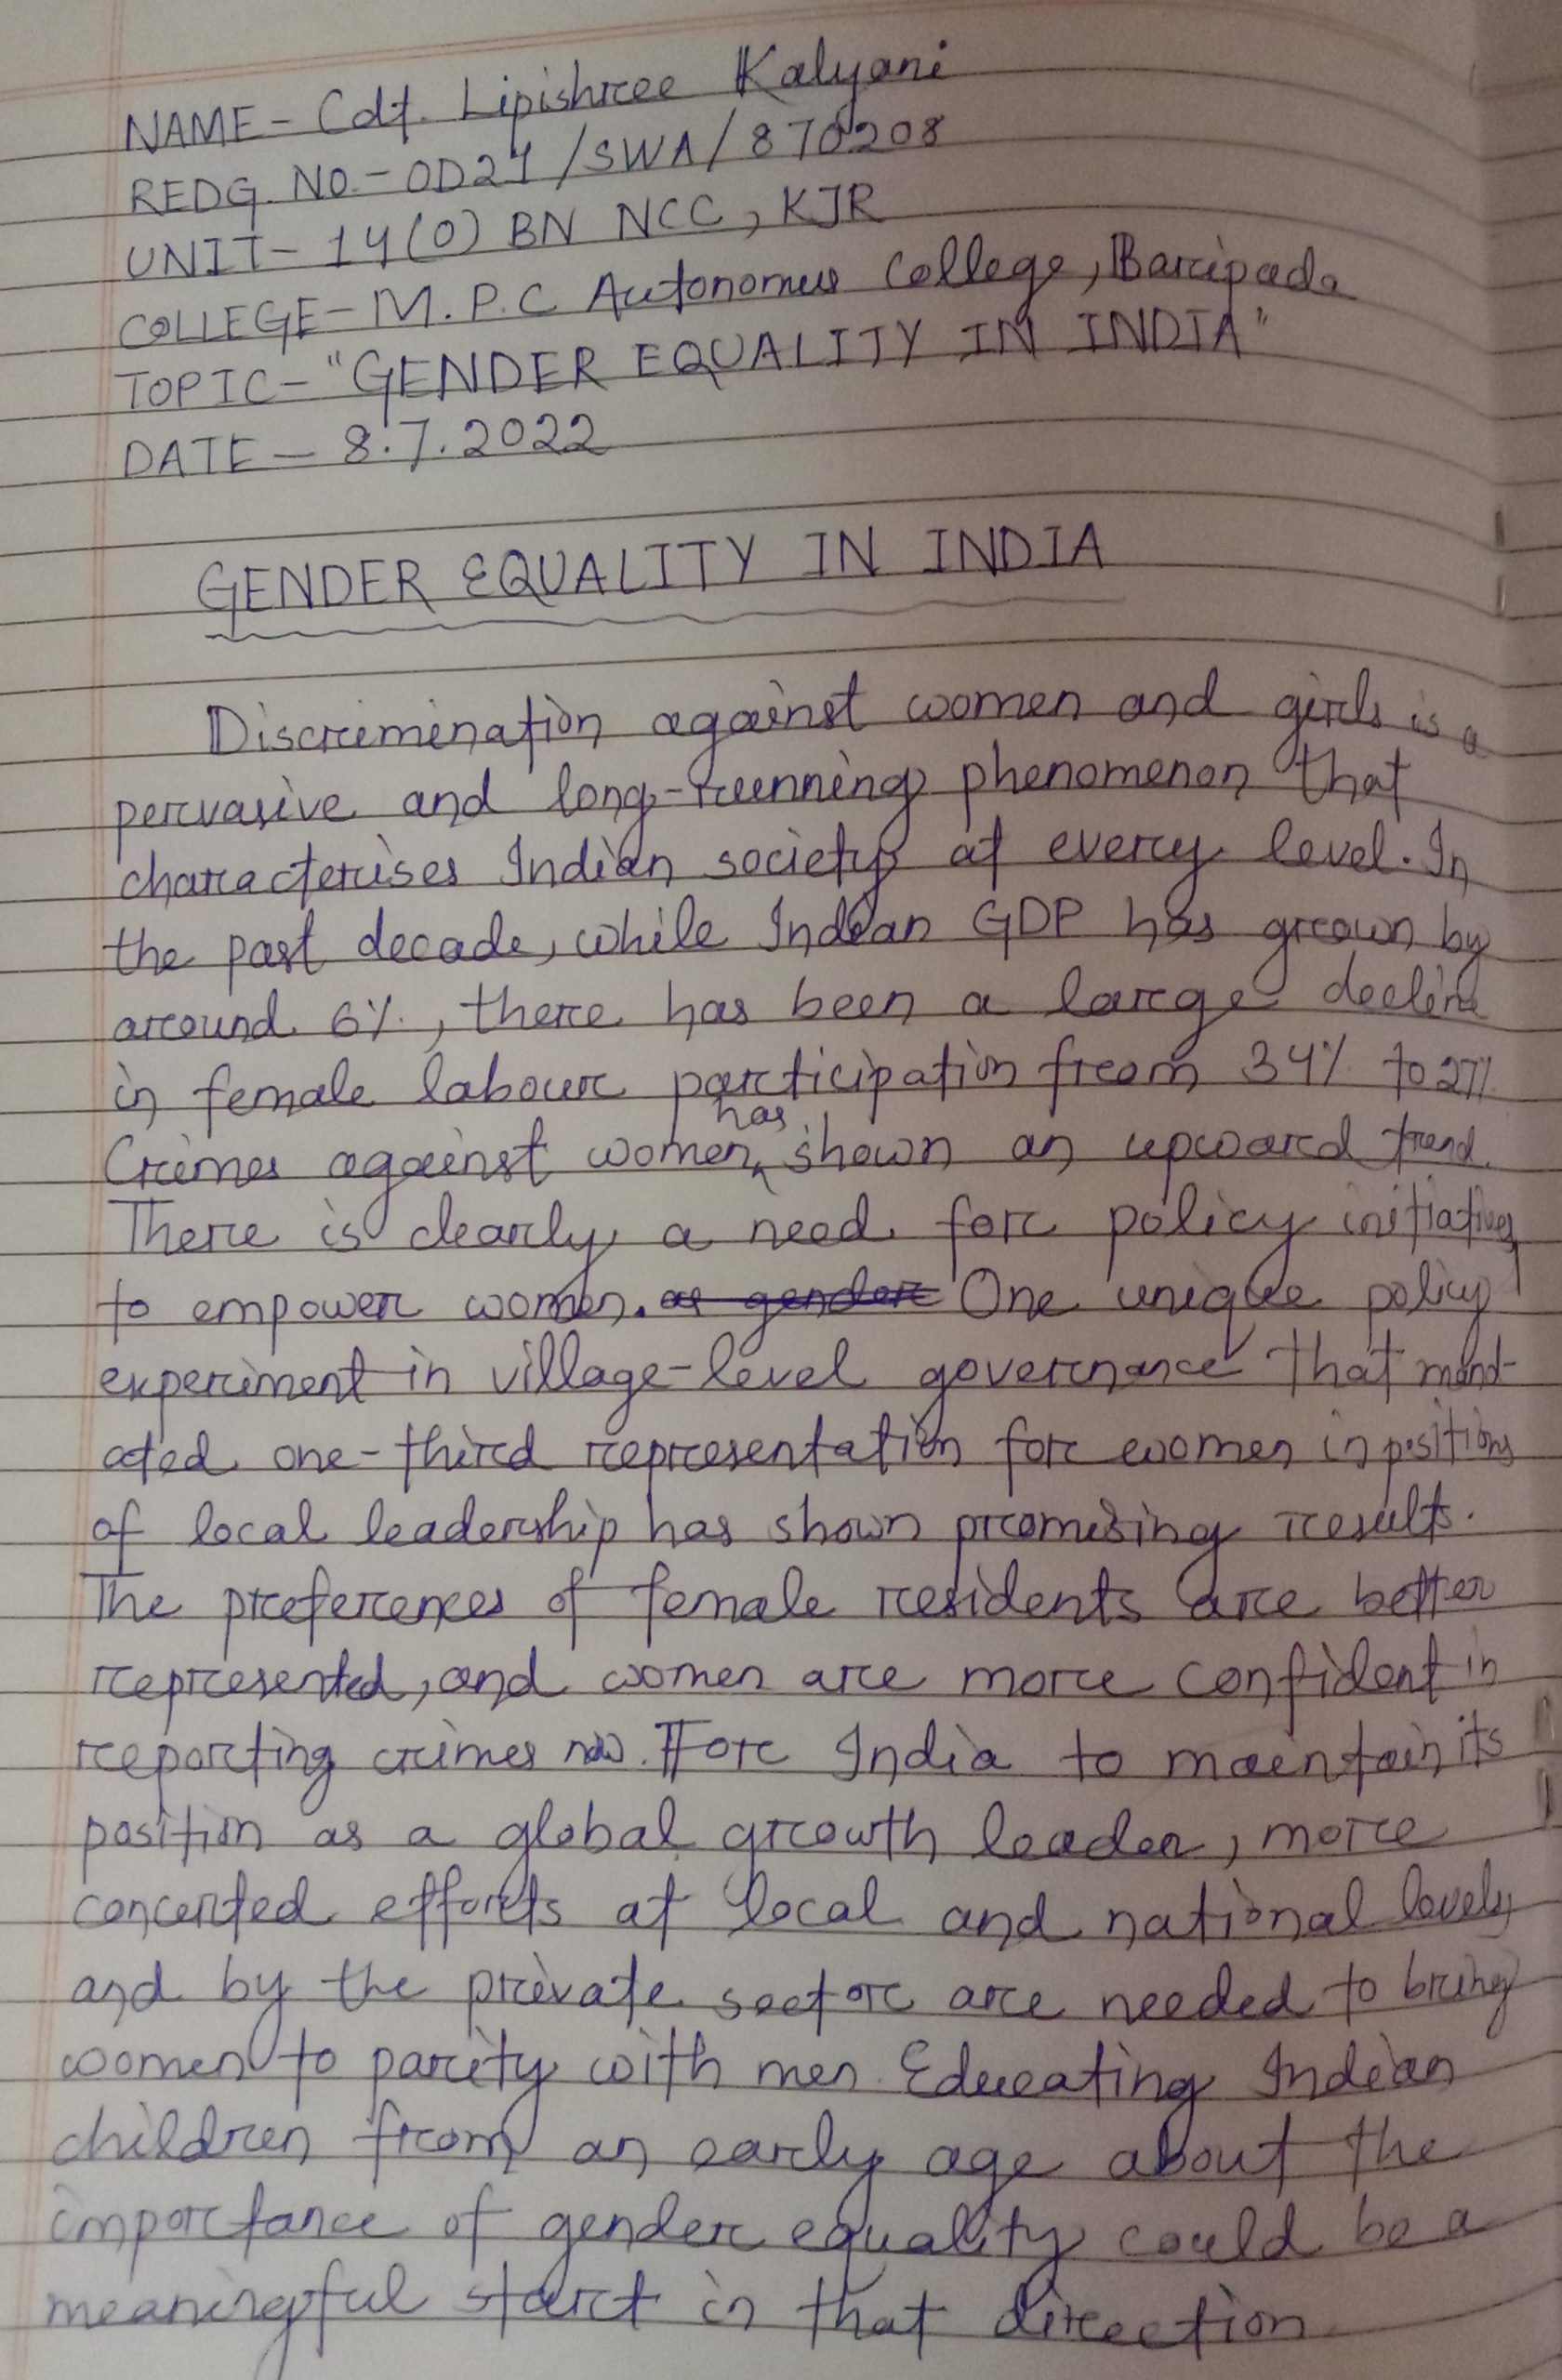 NAME - Cdt. Lipishree Kalyani
REDG. NO.- OD21/SWA/870208
UNIT- 14(O) BN NCC, KJR
COLLEGE- M.P.C Autonomus College, Baripada
TOPIC- "GENDER EQUALITY IN INDIA"
DATE - 8.7.2022
GENDER EQUALITY IN INDIA
Discrimination against women and girls is a
pervasive and long-running phenomenon that
characterises Indian society at every level. In
the past decade, while Indian GDP has grown by
around 6%, there has been a large decline
in female labour participation from 34% to 27%.
Crimes against women has shown an upward trend.
There is clearly a need for policy initiatives
to empower women. as gender One unique policy
experiment in village-level governance that mand-
ated one-third representation for women in positions
of local leadership has shown promising results.
The preferences of female residents are better
represented, and women are more confident in
reporting crimes now. For India to maintain its
position as a global growth leader, more
concerted efforts at local and national levels,
and by the private sector are needed to bring
women to parity with men. Educating Indian
children from an early age about the
importance of gender equality could be a
meaningful start in that direction.